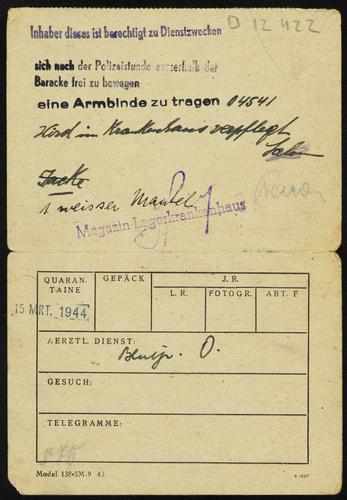 D 12422
Inhaber dieses ist berechtigt zu Dienstzwecken
sich nach der Polizeistunde ausserhalb der
Baracke frei zu bewegen
eine Armbinde zu tragen 04541
Wird im Krankenhaus verpflegt
Jacke
1 weisser Mantel
Magazin-Lagerkrankenhaus
QUARAN.
TAINE
GEPÄCK
J. R.
L. R.
FOTOGR.
ABT. F
15 MRT. 1944
AERZTL. DIENST:
Blutgr. O.
GESUCH:
TELEGRAMME:
Model 138-5M.9 43
K 1237